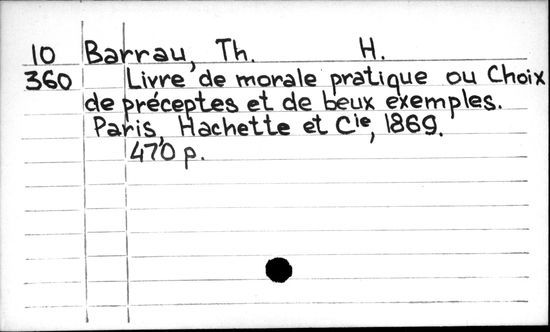 10 Barrau, Th. H.
360 Livre de morale pratique ou Choix
de préceptes et de beux exemples.
Paris, Hachette et Cie, 1869.
470 p.